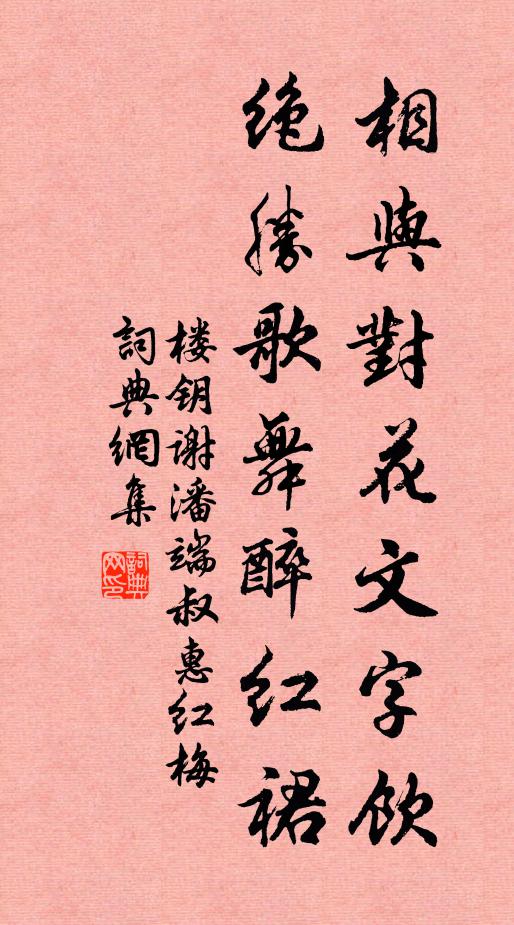 相與對花文字飲
絶勝歌舞醉红裙
楼钥谢潘端叔惠红梅
詞典網集
詞典网印